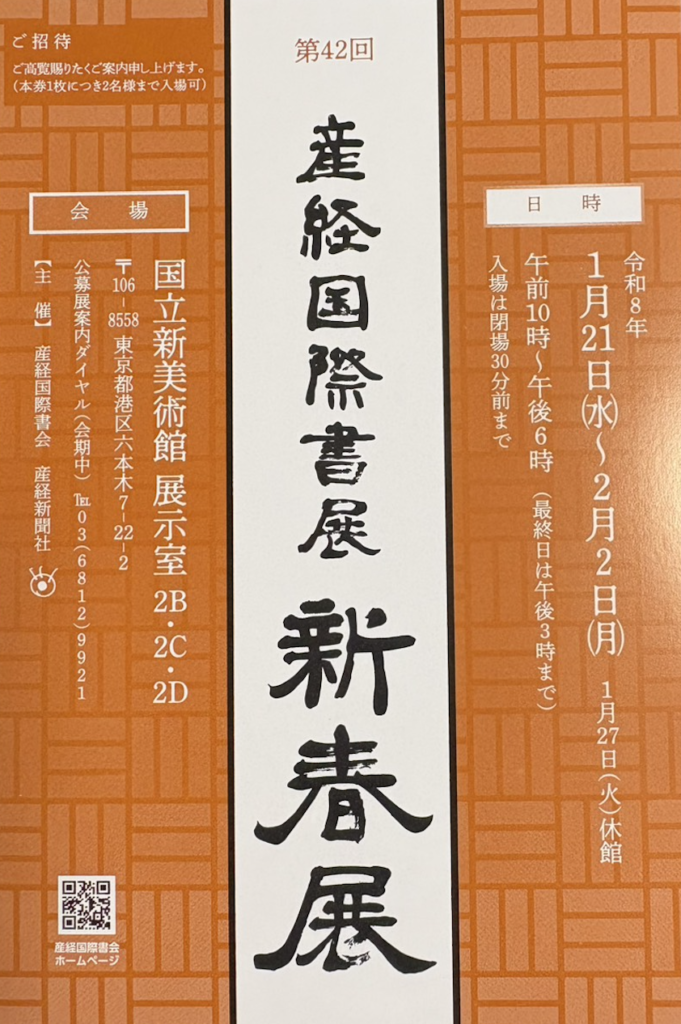 ご招待
ご高覧賜りたくご案内申し上げます。
（本券1枚につき2名様まで入場可）
第42回
産経国際書展
新春展
日時
令和8年
1月21日㈬～2月2日㈪ 1月27日（火）休館
午前10時～午後6時（最終日は午後3時まで）
入場は閉場30分前まで
会場
国立新美術館 展示室 2B・2C・2D
〒106-8558 東京都港区六本木7-22-2
公募展案内ダイヤル（会期中）℡03(6812)9921
【主催】産経国際書会 産経新聞社
産経国際書会
ホームページ